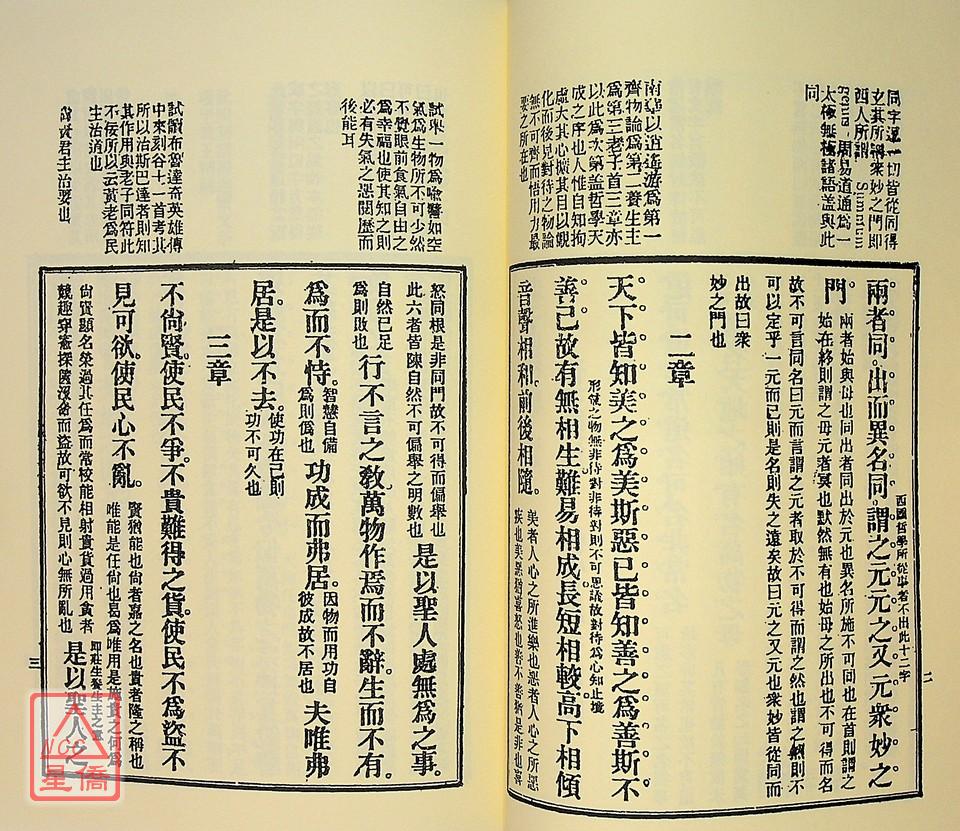 同字逗一切皆從同得
玄其所謂衆妙之門卽
西人所謂 Summum
genus 周易道通爲一
太極無極諸語蓋與此
同
南華以逍遙游爲第一
齊物論爲第二養生主
爲第三老子首三章亦
以此爲次第蓋哲學天
成之序也人惟自知拘
虛大其心擴其目以觀
化而後見對待之物論
無不可齊而悟用力最
要之所在也
西國哲學所從事者不出此十二字
兩者同。出而異名。同謂之元。元之又元。衆妙之
門。兩者始與母也同出者同出於元也異名所施不可同也在首則謂之
始在終則謂之母元者冥也默然無有也始母之所出也不可得而名
故不可言同名曰元而言謂之元者取於不可得而謂之然也謂之然則不
可以定乎一元而已則是名則失之遠矣故曰元之又元也衆妙皆從同而
出故曰衆
妙之門也
二章
形氣之物無非待對非待對則不可思議故對待爲心知止境
天下皆知美之爲美斯惡已皆知善之爲善斯不
善已故有無相生難易相成長短相較高下相傾
音聲相和前後相隨。美者人心之所進樂也惡者人心之所惡
疾也美惡猶喜怒也善不善猶是非也喜
二
試舉一物爲喻譬如空
氣爲生物所不可少然
不覺眼前食氣自由之
爲幸福也使其知之則
必有失氣之惡閱歷而
後能耳
試讀布魯達奇英雄傳
中來刻谷士一首考其
所以治斯巴達者則知
其作用與老子同符此
不佞所以云黃老爲民
生治道也
尚賢君主治要也
怒同根是非同門故不可得而偏舉也
此六者皆陳自然不可偏舉之明數也是以聖人處無爲之事。
自然已足
爲則敗也行不言之敎。萬物作焉而不辭。生而不有。
爲而不恃。智慧自備
爲則僞也功成而弗居。因物而用功自
彼成故不居也夫唯弗
居。是以不去。使功在己則
功不可久也
三章
不尚賢。使民不爭。不貴難得之貨。使民不爲盜。不
見可欲。使民心不亂。賢猶能也尚者嘉之名也貴者隆之稱也
唯能是任尚也曷爲唯用是施貴之何爲
尚賢顯名榮過其任爲而常校能相射貴貨過用貪者
競趣穿窬探篋沒命而盜故可欲不見則心無所亂也是以聖人之
三
星僑
NCC